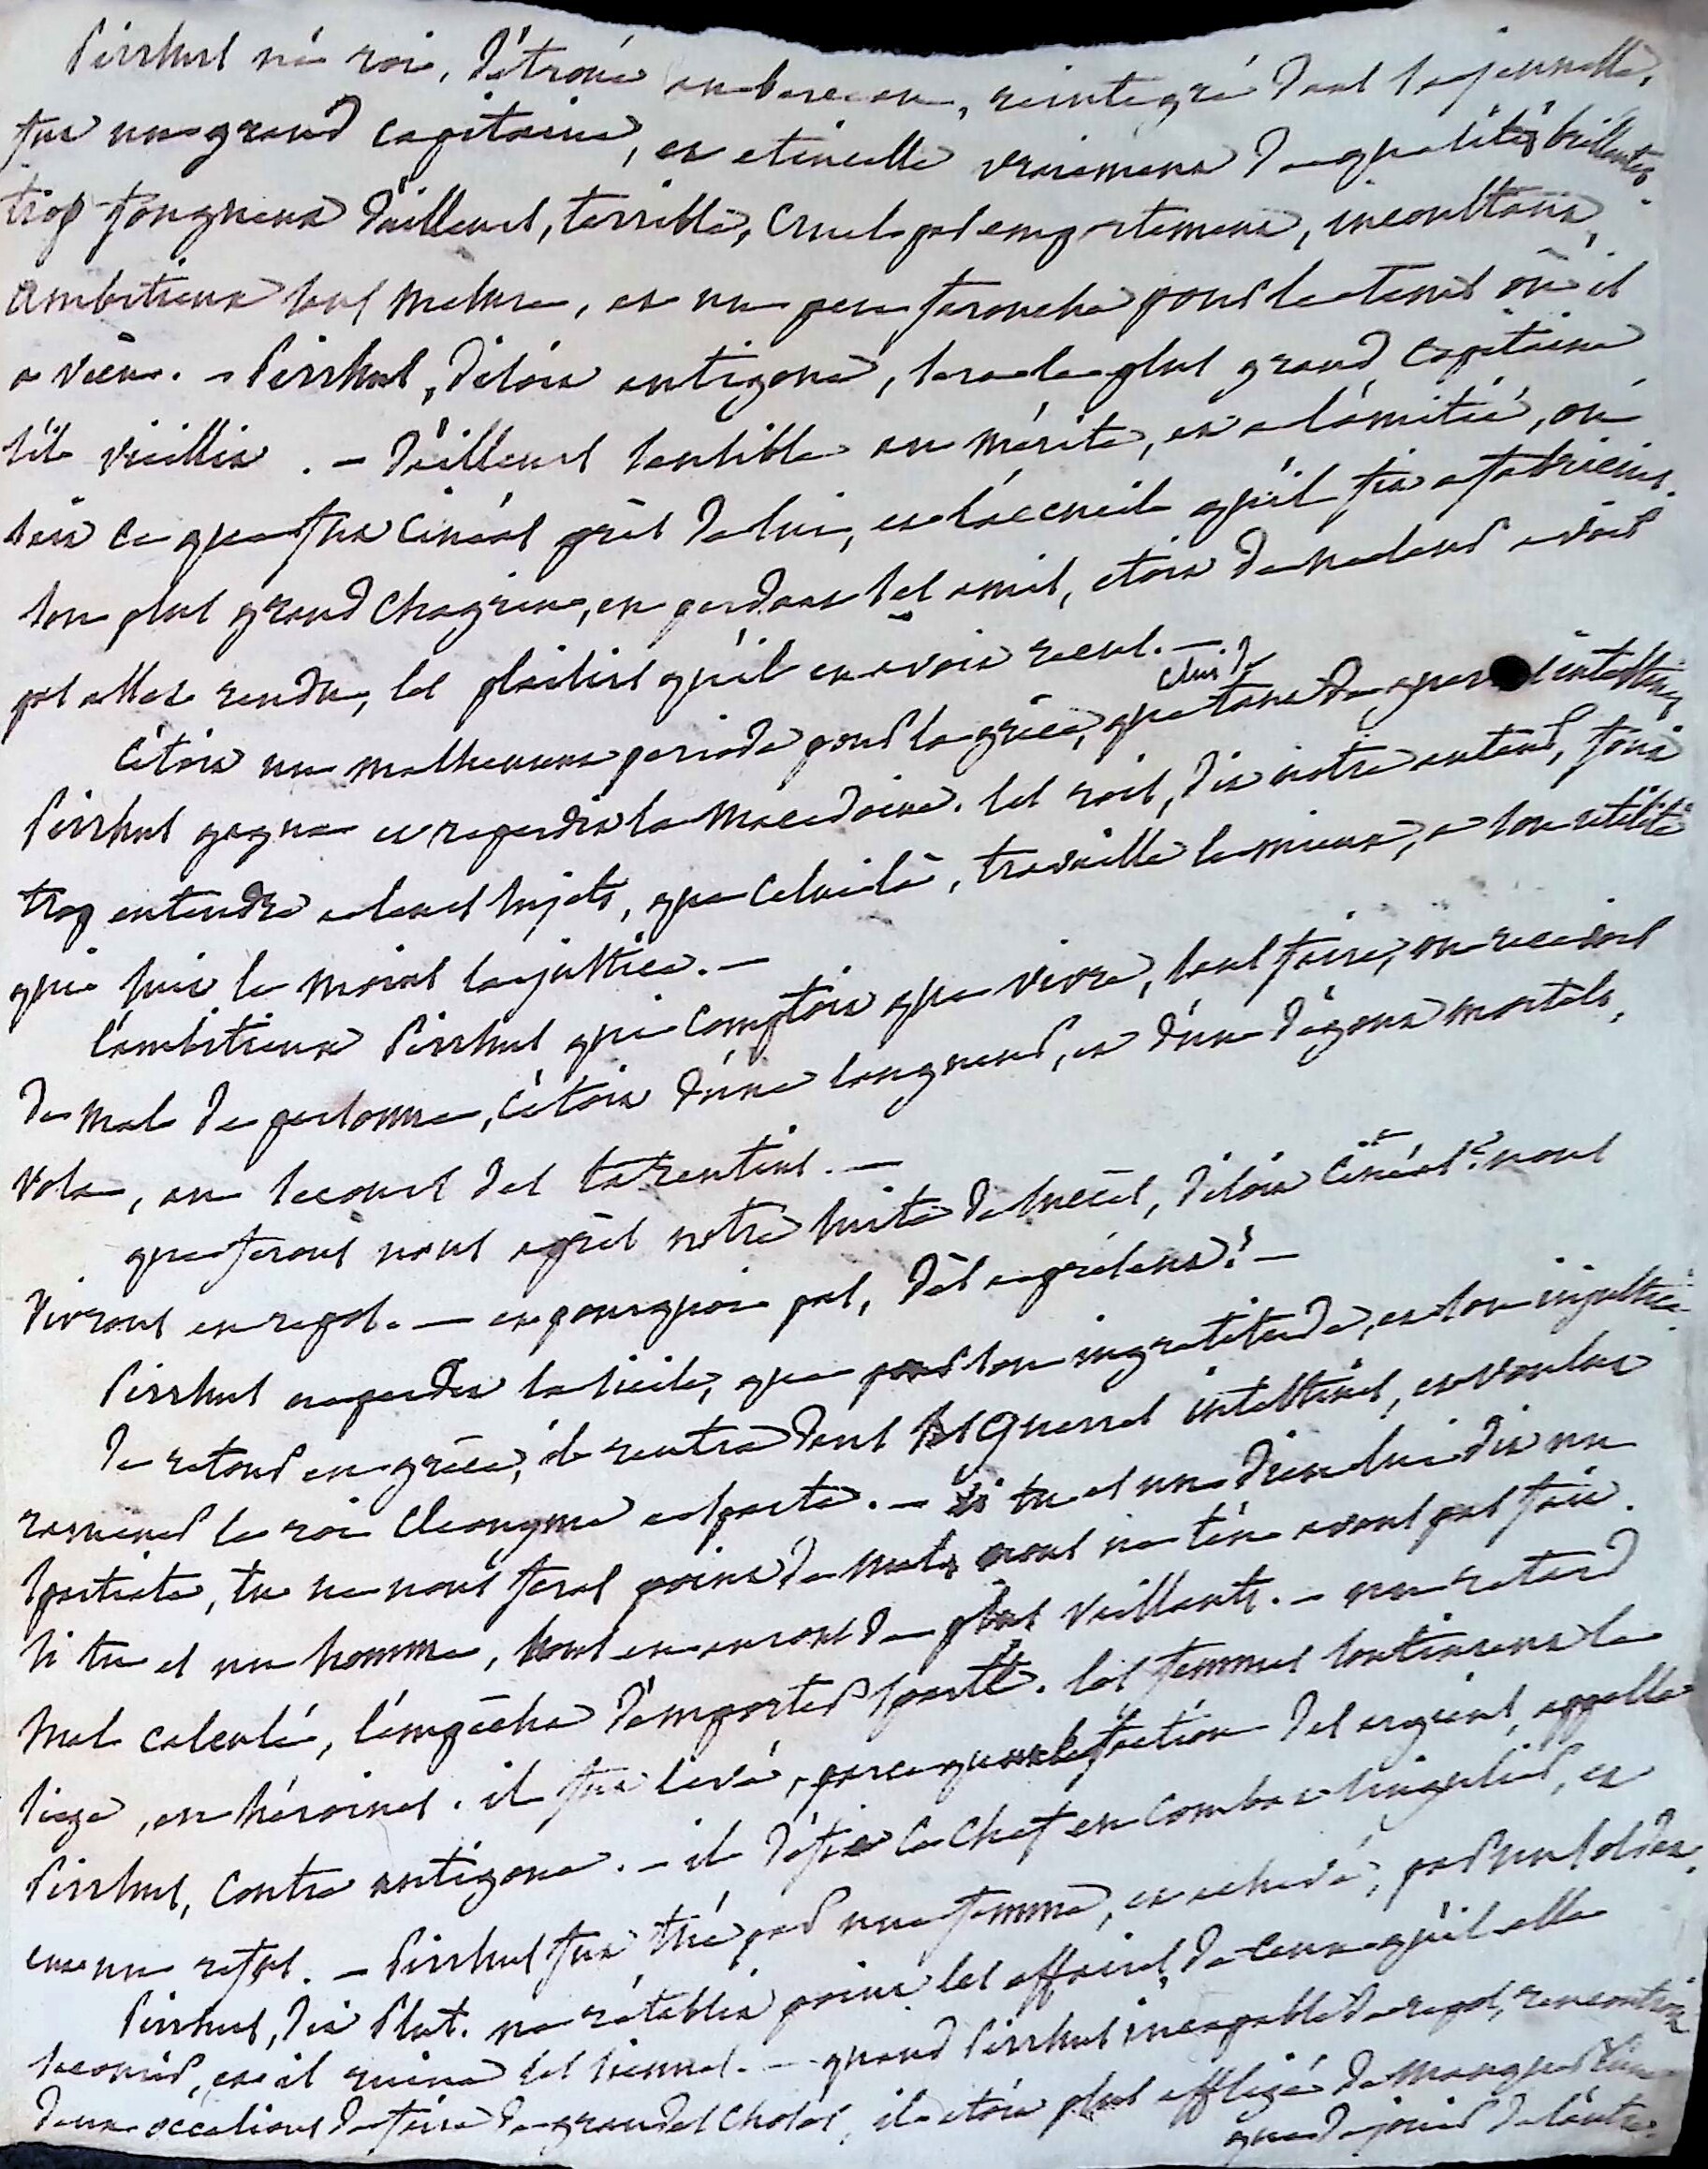 Pirrhus né roi, détroné au berceau, reintegré dans sa jeunesse,
fut un grand capitaine, et etincelle vraiment de qualités brillantes
trop fougueux d'ailleurs, terrible, cruel par emportement, inconstant,
ambitieux sans mesure, et un peu farouche pour le tems où il
a vécu. – Pirrhus, disoit antigone, sera le plus grand capitaine
s'il vieillit. – d'ailleurs sensible au mérite, et a l'amitié, on
sait ce que fut cinéas près de lui, et l'accueil qu'il fit a fabricius.
son plus grand chagrin, en perdant ses amis, etoit de ne leur avoir
pas assez rendu, les plaisirs qu'il en avoit reçus. –
c'étoit un malheureux periode pour la grèce, que celui de tant de guerres intestines
Pirrhus gagna et reperdit la macedoine. les rois, dit notre auteur, font
trop entendre a leurs sujets, que celui là, travaille le mieux, a son utilité
qui suit le moins la justice. –
L'ambitieux Pirrhus qui comptoit que vivre, sans faire, ou recevoir
de mal de personne, c'étoit d'une langueur, et d'un dégout mortels,
vola, au secours des tarentins. –
que ferons nous après notre suite de succès, disoit cinéas? nous
vivrons en repos. – et pourquoi pas, dès a présent? –
Pirrhus ne perdit la sicile, que par son ingratitude, et son injustice.
de retour en grèce, il rentra dans les guerres intestines, et voulut
ramener le roi cleonyme a sparte. – si tu es un dieu lui dit un
spartiate, tu ne nous feras point de mal, nous ne t'en avons pas fait.
si tu es un homme, nous en aurons de plus vaillants. – un retard
mal calculé, l'empêcha d'emporter sparte. les femmes soutinrent le
siege, en héroines. il fut levé, parce qu'une faction des argiens, appella
Pirrhus, contre antigone. – il défia ce chef en combat singulier, et
eut un refus. – Pirrhus fut tué par une femme, et achevé, par un soldat.
Pirrhus, dit Plut. ne rétablit point les affaires, de ceux qu'il alla
secourir, et il ruina les siennes. – quand Pirrhus incapable de repos, rencontroit
deux occasions de faire de grandes choses, il etoit plus affligé de manquer l'une
que de jouir de l'autre.